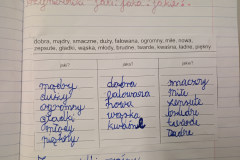 jaki? jaka? jakie?
dobra, mądry, smaczne, duży, łakwana, ogromny, miłe, nowa,
zepsute, gładki, wąska, młody, brudne, twarde, kwaśna, ładne, piękny
jaki? jaka? jakie?
mądry dobra smaczny
duży łakowana miłe
ogromny nowa zepsute
gładki wąska brudne
młody kwaśna twarde
piękny ładne